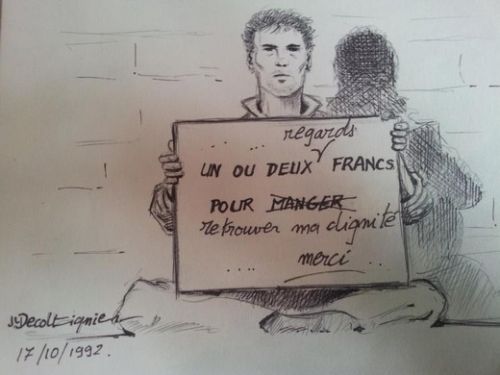 regards
UN OU DEUX FRANCS
POUR MANGER
retrouver ma dignité
.... merci ....
17/10/1992.